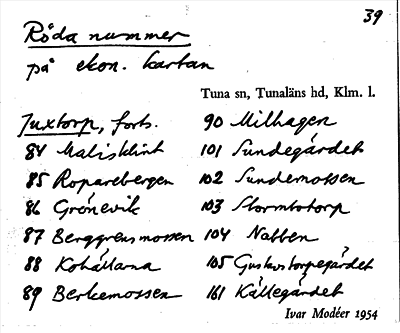 39
Röda nummer
på ekon. kartan
Tuna sn, Tunaläns hd, Klm. l.
Tuxtorp, forts.
84 Malisklint
85 Roparebergen
86 Grönevik
87 Berggrensmossen
88 Kohállarna
89 Berkemossen
90 Milhagen
101 Sundegärdet
102 Sundemossen
103 Stormtorp
104 Nabben
105 Gustavstorpegärdet
161 Källegärdet
Ivar Modéer 1954